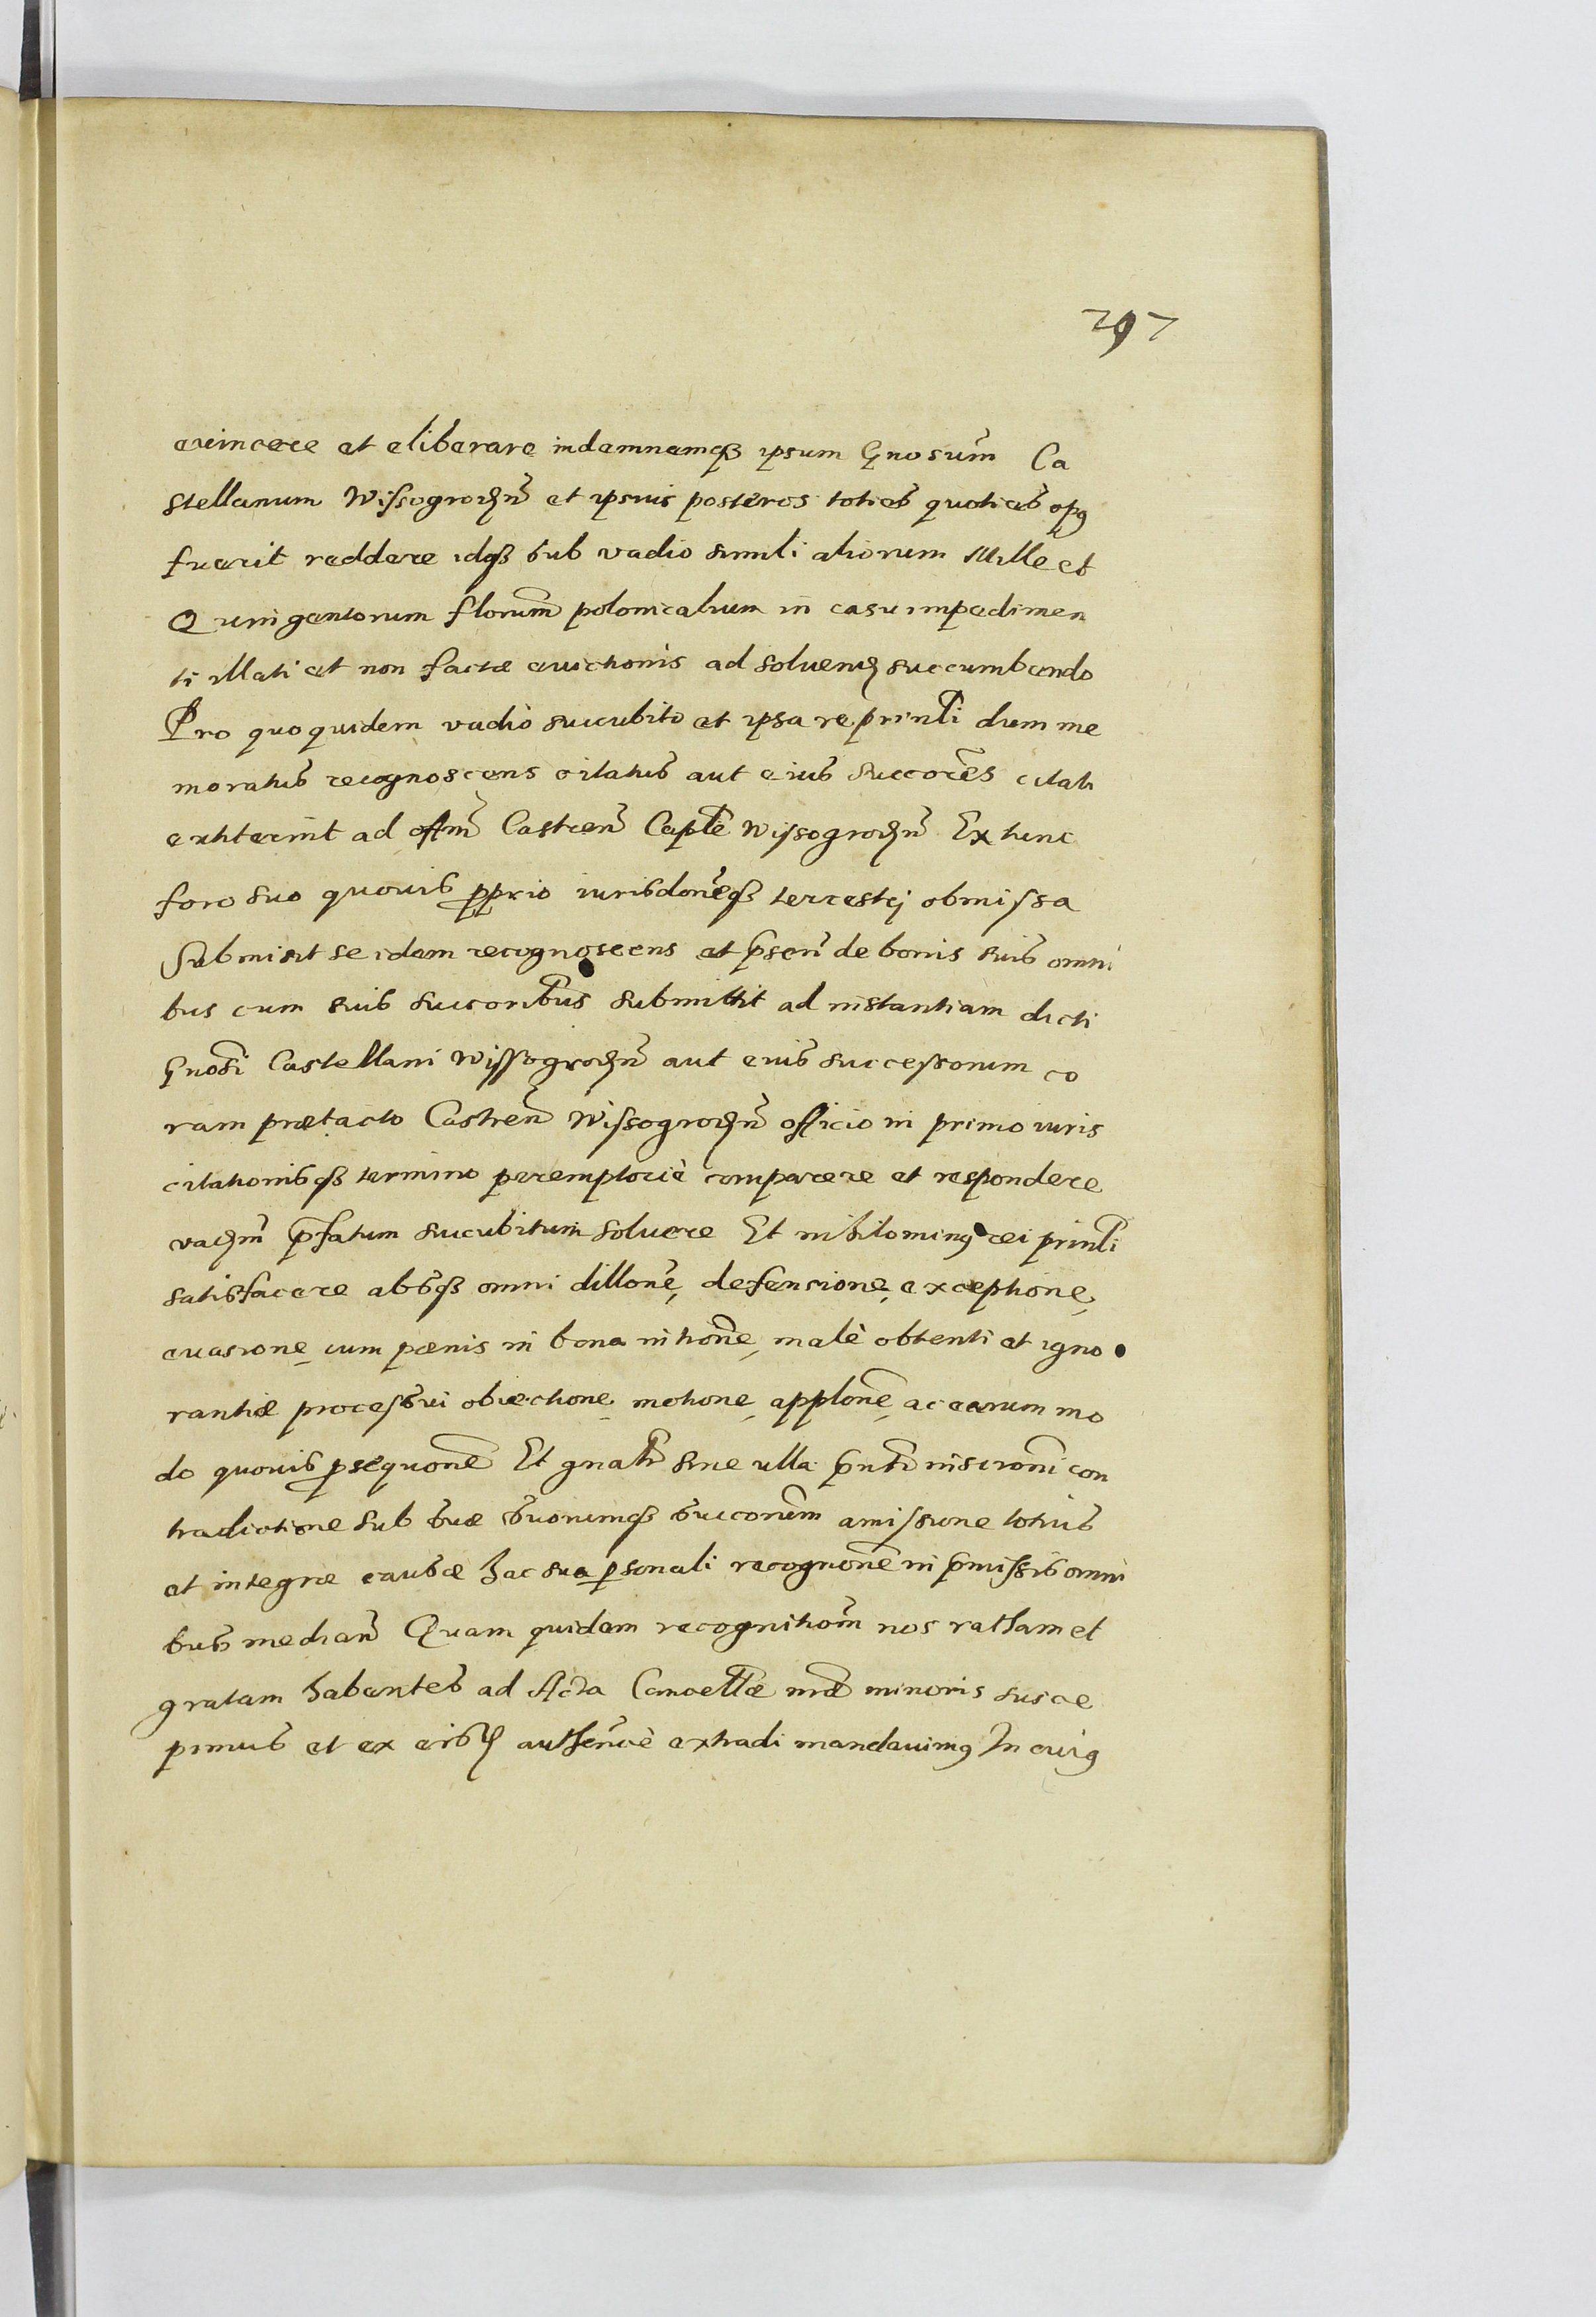 297
euincere et eliberare indemnemq3 ipsum Gnosum̃ Ca
stellanum Wissogrodzeñ et ipsius posteros toties quoties opꝯ
fuerit reddere idq3 sub vadio simili aliorum Mille et
Quingentorum florum̃ polonicalium in casu impedimen
ti illati et non factæ euictionis ad soluend succumbendo
Pro quo quidem vadio succubito et ipsa re prinłi dum me
moratus recognoscens citatus aut eius succores̃ citati
extiterint ad offm̃ Castreñ Capłe Wissogrodzeñ Ex tunc
foro suo quouis ꝓprio iurisdoneq̃3 terrestri obmissa
Submisit se idem recognoscens et p̃señ de bonis suis omni
bus cum suis succoribus̃ submittit ad instantiam dicti
Gnosi̇̃ Castellani Wissogrodzeñ aut eius successorum co
ram prætacto Castreñ Wissogrodzeñ officio in primo iuris
citationisq3 termino peremptoriè comparere et respondere
vadium̃ p̃fatum succubitum soluere Et nihilominꝯ rei prinłi
satisfacere absq3 omni dillonẽ̳, defensione, exceptione,
euasione, cum pœnis in bona intronẽ̳, malè obtenti et igno
rantiæ processui obiectione, motione, applonẽ̳, ac earum mo
do quouis ꝑsequonẽ̳ Et gnałr sine ulla p̃nti inscroni̇̃ con
tradictione sub suæ suorumq3 succorum̃ amissione totius
et integræ causæ hac sua ꝑsonali recognonẽ̳ in p̃missis omni
bus median̄ Quam quidem recognitiom̃ nos ratham et
gratam habentes ad Acta Cancellæ̃ nr̃æ minoris susce
pimus et ex eisd authenᵗicè extradi mandauimꝯ In cuiꝯ